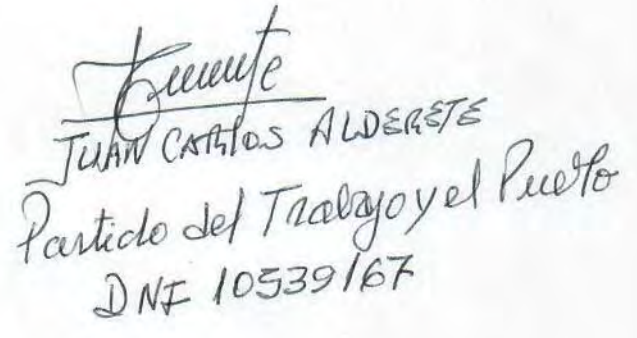 JUAN CARlOS ALDERETE
Partido del Trabajo y el Pueblo
DNI 10539167